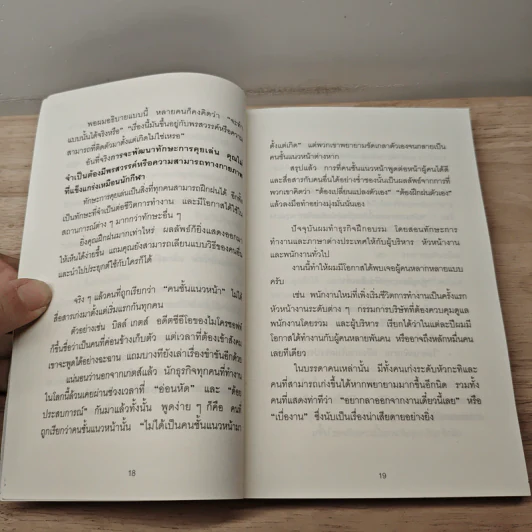 พอผมอธิบายแบบนี้ หลายคนก็คงคิดว่า "จะทำ
แบบนั้นได้จริงหรือ" "เรื่องนี้มันขึ้นอยู่กับพรสวรรค์หรือความ
สามารถที่ติดตัวมาตั้งแต่เกิดไม่ใช่เหรอ"
อันที่จริงการจะพัฒนาทักษะการคุยเล่น คุณไม่
จำเป็นต้องมีพรสวรรค์หรือความสามารถทางกายภาพ
ที่แข็งแกร่งเหมือนนักกีฬา
ทักษะการคุยเล่นเป็นสิ่งที่ทุกคนสามารถฝึกฝนได้ อีกทั้ง
เป็นทักษะที่จำเป็นต่อชีวิตการทำงาน และมีโอกาสได้ใช้ใน
สถานการณ์ต่าง ๆ มากกว่าทักษะอื่น ๆ
ยิ่งคุณฝึกฝนมากเท่าไหร่ ผลลัพธ์ก็ยิ่งแสดงออกมา
ให้เห็นได้ง่ายขึ้น แถมคุณยังสามารถเลียนแบบวิธีของคนอื่น
และนำไปประยุกต์ใช้กับใครก็ได้
จริง ๆ แล้วคนที่ถูกเรียกว่า "คนชั้นแนวหน้า" ไม่ได้
สื่อสารเก่งมาตั้งแต่เริ่มแรกกันทุกคน
ตัวอย่างเช่น บิลล์ เกตส์ อดีตซีอีโอของไมโครซอฟต์
ก็ขึ้นชื่อว่าเป็นคนที่ค่อนข้างเก็บตัว แต่เวลาที่ต้องเข้าสังคม
เขาจะพูดได้อย่างฉะฉาน แถมบางทียังเล่าเรื่องขำขันอีกด้วย
แน่นอนว่านอกจากเกตส์แล้ว นักธุรกิจทุกคนที่ทำงาน
ในโลกนี้ล้วนเคยผ่านช่วงเวลาที่ "อ่อนหัด" และ "ด้อย
ประสบการณ์" กันมาแล้วทั้งนั้น พูดง่าย ๆ ก็คือ คนที่
ถูกเรียกว่าคนชั้นแนวหน้านั้น "ไม่ได้เป็นคนชั้นแนวหน้ามา
18
ตั้งแต่เกิด" แต่พวกเขาพยายามขัดเกลาตัวเองจนกลายเป็น
คนชั้นแนวหน้าต่างหาก
สรุปแล้ว การที่คนชั้นแนวหน้าพูดต่อหน้าผู้คนได้ดี
และสื่อสารกับคนอื่นได้อย่างช่ำชองนั้นเป็นผลลัพธ์จากการที่
พวกเขาคิดว่า "ต้องเปลี่ยนแปลงตัวเอง" "ต้องฝึกฝนตัวเอง"
แล้วลงมือทำอย่างมุ่งมั่นนั่นเอง
ปัจจุบันผมทำธุรกิจฝึกอบรม โดยสอนทักษะการ
ทำงานและภาษาต่างประเทศให้กับผู้บริหาร หัวหน้างาน
และพนักงานทั่วไป
งานนี้ทำให้ผมมีโอกาสได้พบเจอผู้คนหลากหลายแบบ
ครับ
เช่น พนักงานใหม่ที่เพิ่งเริ่มชีวิตการทำงานเป็นครั้งแรก
หัวหน้างานระดับต่าง ๆ กรรมการบริษัทที่ต้องควบคุมดูแล
พนักงานโดยรวม และผู้บริหาร เรียกได้ว่าในแต่ละปีผมมี
โอกาสได้ทำงานกับผู้คนหลายพันคน หรืออาจถึงหลักหมื่นคน
เลยทีเดียว
ในบรรดาคนเหล่านั้น มีทั้งคนเก่งระดับหัวกะทิและ
คนที่สามารถเก่งขึ้นได้หากพยายามมากขึ้นอีกนิด รวมทั้ง
คนที่แสดงท่าทีว่า "อยากลาออกจากงานเดี๋ยวนี้เลย" หรือ
"เบื่องาน" ซึ่งนับเป็นเรื่องน่าเสียดายอย่างยิ่ง
19